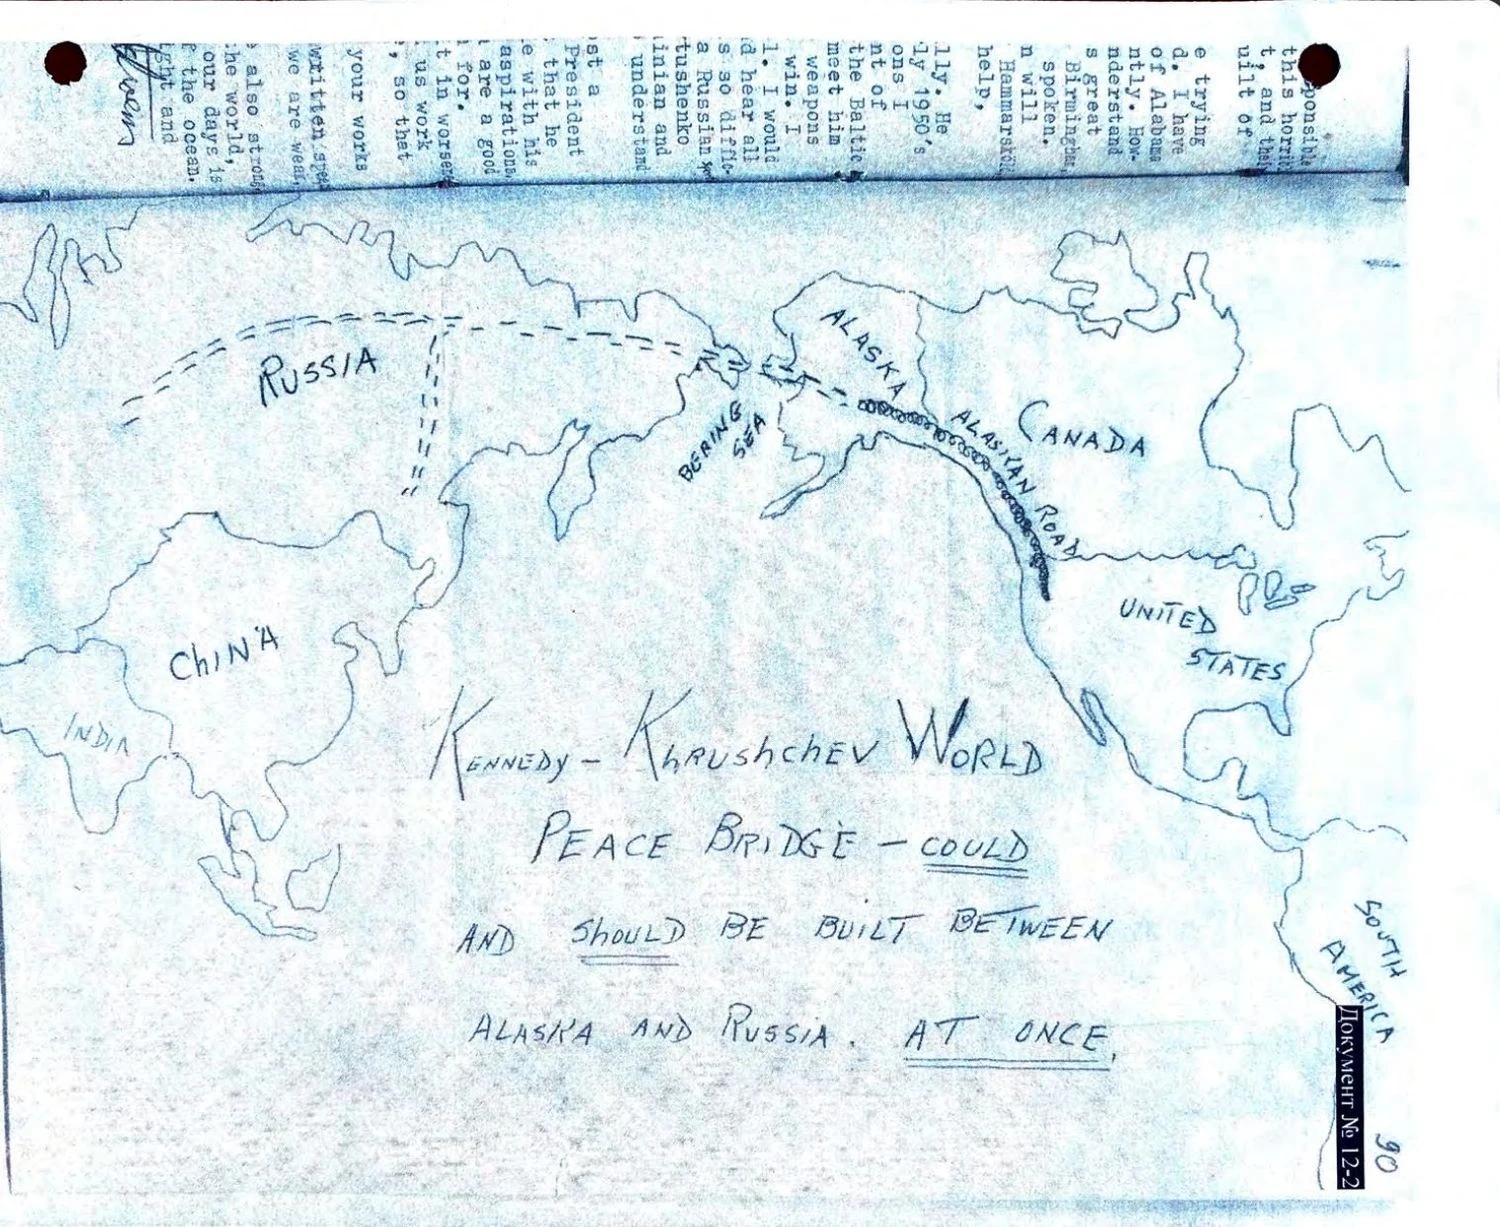 ponsible
this horri
t, and thei
uilt of
e trying
d. I have
of Alabama
ntly. How-
nderstand
s great
Birmingham,
spoken.
n will
Hammarskö
help,
lly. He
ly 1950's
ons I
nt of
the Baltic
meet him
weapons
win. I
l. I would
d hear all
s so diffic-
a Russian
tushenko
inian and
understand
ost a
President
that he
e with his
aspirations,
are a good
for.
t in worsen
us work
, so that
your works
written
we are wear
also strong
he world,
our days is
f the ocean.
ght and
RUSSIA
ALASKA
BERING
SEA
ALASKAN ROAD
CANADA
UNITED
STATES
CHINA
INDIA
KENNEDY – KHRUSHCHEV WORLD
PEACE BRIDGE – COULD
AND SHOULD BE BUILT BETWEEN
ALASKA AND RUSSIA. AT ONCE.
SOUTH
AMERICA
Документ № 12-2
90